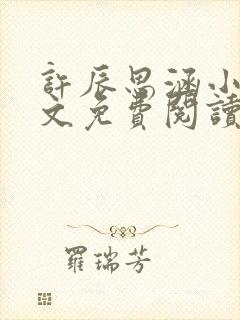 許辰思涵小
文免費閱讀
羅瑞芳